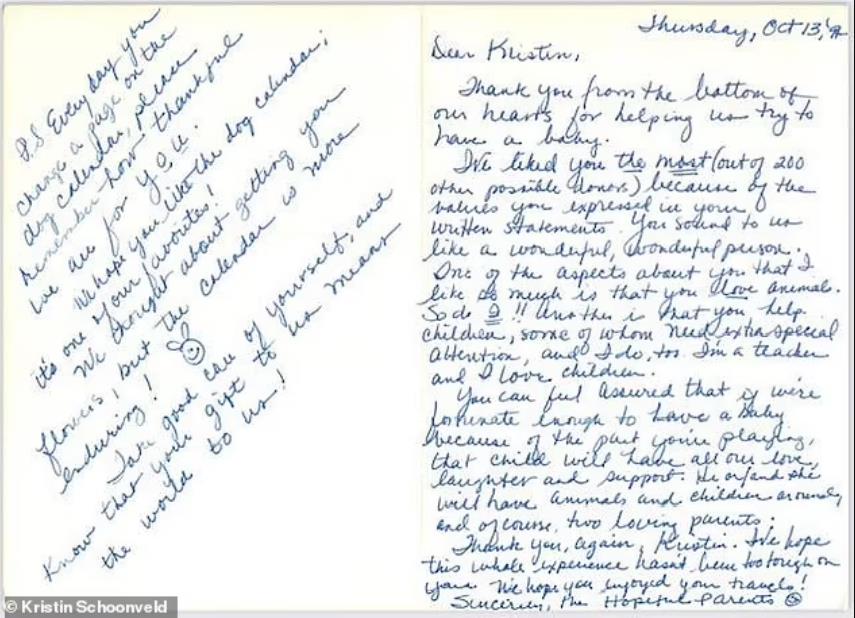 P.S Everyday you
change a page on the
dog calendar, please
remember how thankful
we are for YOU.
We hope you like the dog calendar;
it's one of your favorites!
We thought about getting you
flowers, but the calendar is more
enduring! ☺
Take good care of yourself, and
know that your gift to us means
the world to us!
Thursday, Oct 13,
Dear Kristin,
Thank you from the bottom of
our hearts for helping us try to
have a baby.
I've liked you the most (out of 200
other possible donors) because of the
values you expressed in your
written statements. You sound to us
like a wonderful, wonderful person.
One of the aspects about you that I
like so much is that you love animals.
So do I!! Another is that you help
children, some of whom need extra special
attention, and I do, too. I'm a teacher
and I love children.
You can feel assured that if we're
fortunate enough to have a baby
because of the part you're playing,
that child will have all our love,
laughter and support. He or/and she
will have animals and children around,
and of course, two loving parents.
Thank you, again, Kristin. We hope
this whole experience hasn't been too tough on
you. We hope you enjoyed your travels!
Sincerely, the Hopeful Parents ☺
© Kristin Schoonveld